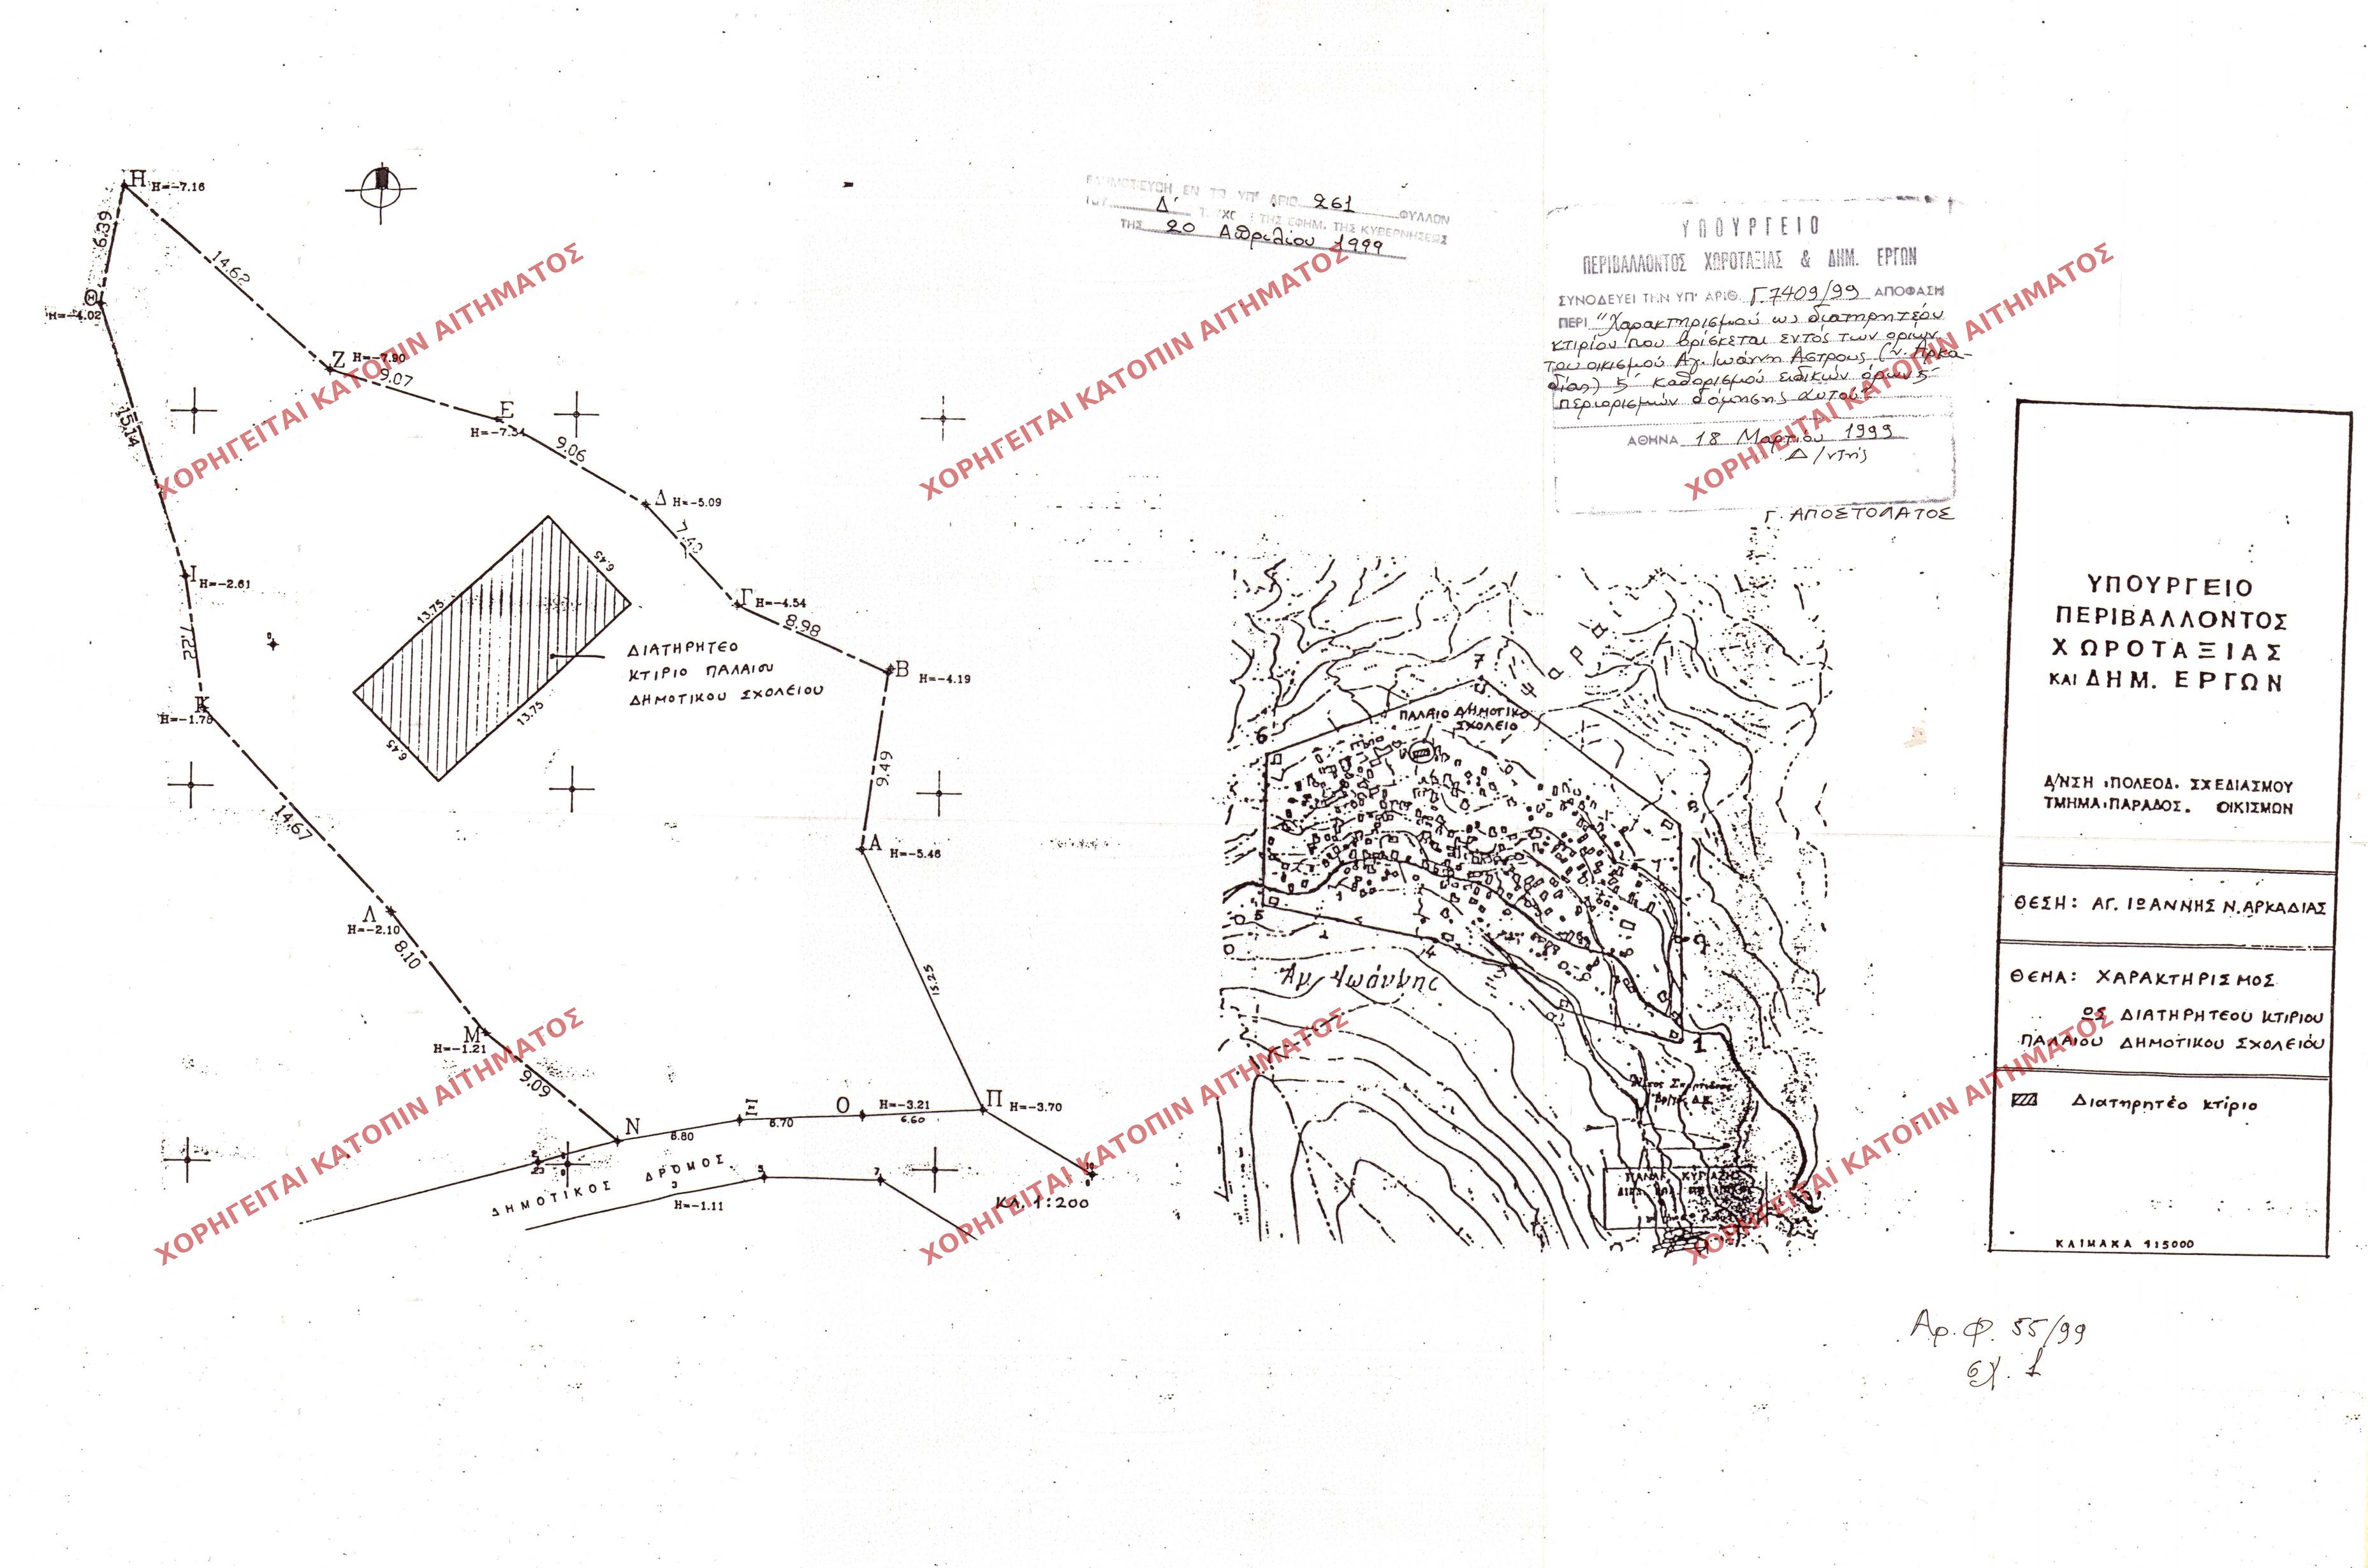 Η Η=-7.16
6.39
14.62
Θ
Η=-4.02
Ζ Η=-7.90
9.07
Ε
Η=-7.54
9.06
15.14
Δ Η=-5.09
7.42
Ι Η=-2.61
Γ Η=-4.54
8.98
7.22
13.75
6.45
ΔΙΑΤΗΡΗΤΕΟ
ΚΤΙΡΙΟ ΠΑΛΑΙΟΥ
ΔΗΜΟΤΙΚΟΥ ΣΧΟΛΕΙΟΥ
Β Η=-4.19
Κ
Η=-1.78
13.75
6.45
9.49
14.67
Α Η=-5.46
Λ
Η=-2.10
8.10
15.25
Μ
Η=-1.21
9.09
Ν
6.80
Ξ
6.70
Ο Η=-3.21
6.60
Π Η=-3.70
ΔΗΜΟΤΙΚΟΣ ΔΡΟΜΟΣ
3
Η=-1.11
5
7
10
ΚΛ. 1:200
ΕΔΗΜΟΣΙΕΥΘΗ ΕΝ ΤΩ ΥΠ' ΑΡΙΘ. 261 ΦΥΛΛΟΝ
ΤΟΥ Δ' ΤΕΥΧΟΥΣ ΤΗΣ ΕΦΗΜ. ΤΗΣ ΚΥΒΕΡΝΗΣΕΩΣ
ΤΗΣ 20 Απριλίου 1999
ΥΠΟΥΡΓΕΙΟ
ΠΕΡΙΒΑΛΛΟΝΤΟΣ ΧΩΡΟΤΑΞΙΑΣ & ΔΗΜ. ΕΡΓΩΝ
ΣΥΝΟΔΕΥΕΙ ΤΗΝ ΥΠ' ΑΡΙΘ. Γ.7409/99 ΑΠΟΦΑΣΗ
ΠΕΡΙ "Χαρακτηρισμού ως διατηρητέου
κτιρίου που βρίσκεται εντός των ορίων
του οικισμού Αγ. Ιωάννη Άστρους (ν. Αρκα-
δίας) & καθορισμού ειδικών όρων &
περιορισμών δόμησης αυτού"
ΑΘΗΝΑ 18 Μαρτίου 1999
Δ/ντής
Γ. ΑΠΟΣΤΟΛΑΤΟΣ
ΠΑΛΑΙΟ ΔΗΜΟΤΙΚΟ
ΣΧΟΛΕΙΟ
7
6
8
5
4
9
3
2
1
ΥΠΟΥΡΓΕΙΟ
ΠΕΡΙΒΑΛΛΟΝΤΟΣ
ΧΩΡΟΤΑΞΙΑΣ
ΚΑΙ ΔΗΜ. ΕΡΓΩΝ
Δ/ΝΣΗ : ΠΟΛΕΟΔ. ΣΧΕΔΙΑΣΜΟΥ
ΤΜΗΜΑ : ΠΑΡΑΔΟΣ. ΟΙΚΙΣΜΩΝ
ΘΕΣΗ: ΑΓ. ΙΩΑΝΝΗΣ Ν. ΑΡΚΑΔΙΑΣ
ΘΕΜΑ: ΧΑΡΑΚΤΗΡΙΣΜΟΣ
ΩΣ ΔΙΑΤΗΡΗΤΕΟΥ ΚΤΙΡΙΟΥ
ΠΑΛΑΙΟΥ ΔΗΜΟΤΙΚΟΥ ΣΧΟΛΕΙΟΥ
Διατηρητέο κτίριο
ΚΛΙΜΑΚΑ 1:5000
Αρ. Φ. 55/99
σχ. 1
ΧΟΡΗΓΕΙΤΑΙ ΚΑΤΟΠΙΝ ΑΙΤΗΜΑΤΟΣ
ΧΟΡΗΓΕΙΤΑΙ ΚΑΤΟΠΙΝ ΑΙΤΗΜΑΤΟΣ
ΧΟΡΗΓΕΙΤΑΙ ΚΑΤΟΠΙΝ ΑΙΤΗΜΑΤΟΣ
ΧΟΡΗΓΕΙΤΑΙ ΚΑΤΟΠΙΝ ΑΙΤΗΜΑΤΟΣ
ΧΟΡΗΓΕΙΤΑΙ ΚΑΤΟΠΙΝ ΑΙΤΗΜΑΤΟΣ
ΧΟΡΗΓΕΙΤΑΙ ΚΑΤΟΠΙΝ ΑΙΤΗΜΑΤΟΣ